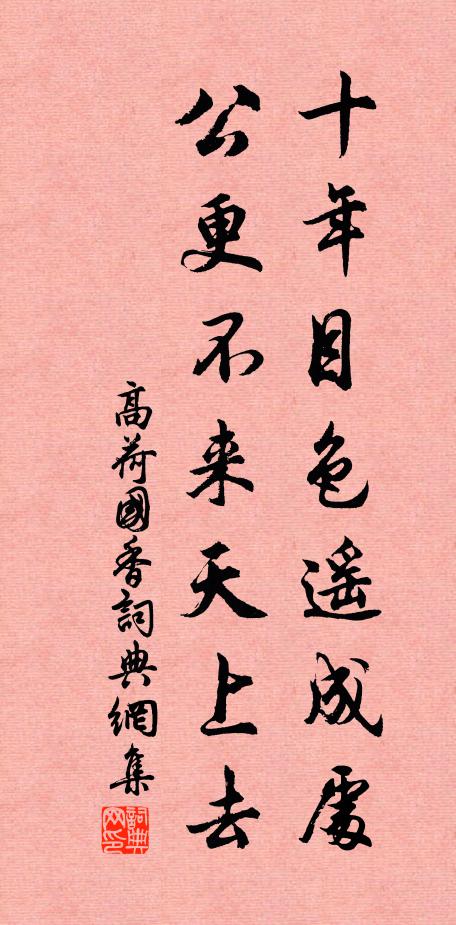 十年目色遥成處
公更不来天上去
高荷國香詞典網集
詞典网印